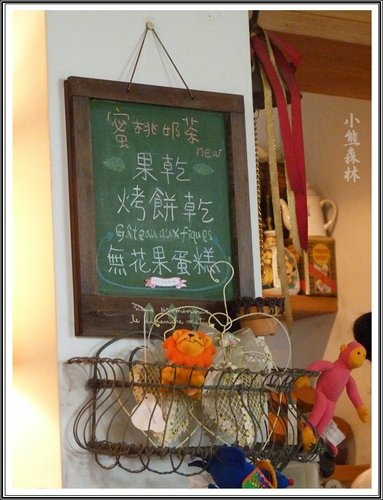 蜜桃奶茶
new
果乾
烤餅乾
Gâteau aux figues
無花果蛋糕
小熊森林